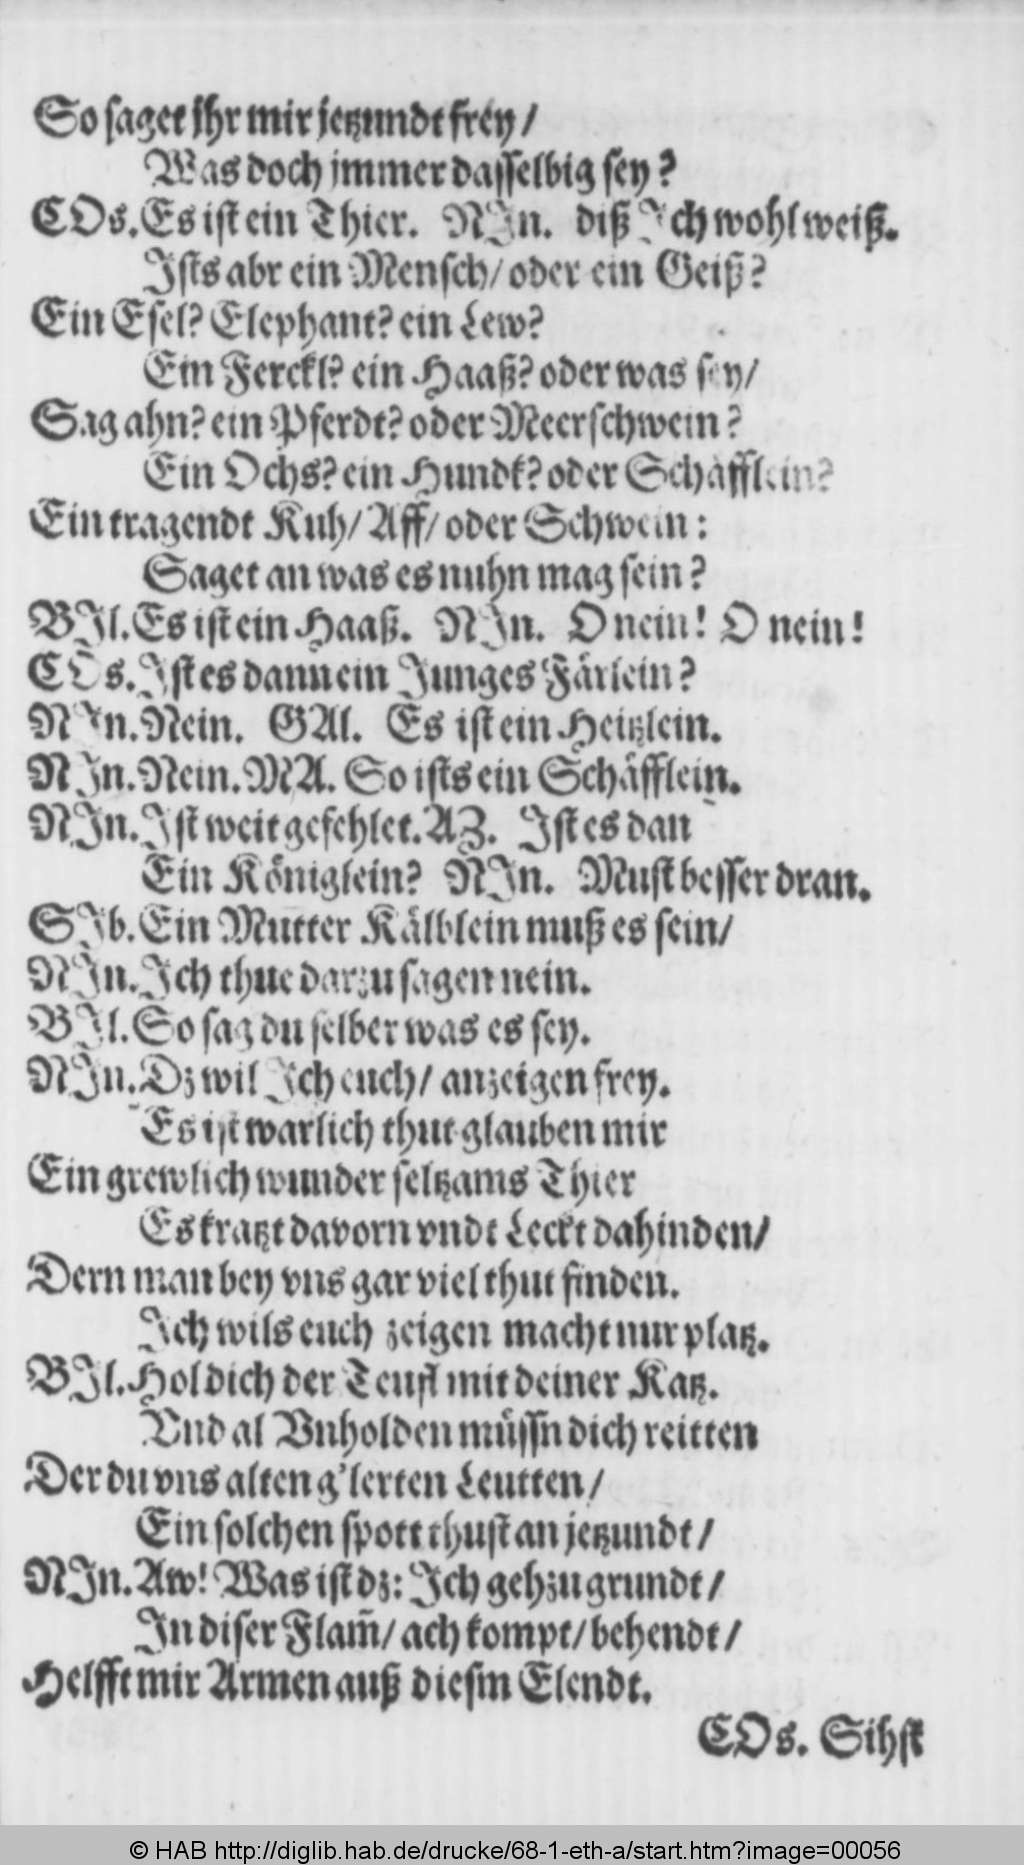 So saget jhr mir jetzundt frey/
Was doch jmmer dasselbig sey?
COs. Es ist ein Thier. NJn. diß Jch wohl weiß.
Jsts abr ein Mensch/ oder ein Geiß?
Ein Esel? Elephant? ein Lew?
Ein Ferckl? ein Haaß? oder was sey/
Sag ahn? ein Pferdt? oder Meerschwein?
Ein Ochs? ein Hundt? oder Schäfflein?
Ein tragendt Kuh/ Aff/ oder Schwein:
Saget an was es nuhn mag sein?
BJl. Es ist ein Haaß. NJn. O nein! O nein!
COs. Jst es dann ein Junges Färlein?
NJn. Nein. GAl. Es ist ein Heitzlein.
NJn. Nein. MA. So ists ein Schäfflein.
NJn. Jst weit gefehlet. AZ. Jst es dan
Ein Königlein? NJn. Must besser dran.
SJb. Ein Mutter Kälblein muß es sein/
NJn. Jch thue darzu sagen nein.
BJl. So sag du selber was es sey.
NJn. Dz wil Jch euch/ anzeigen frey.
Es ist warlich thut glauben mir
Ein grewlich wunder seltzams Thier
Es kratzt davorn vndt Leckt dahinden/
Dern man bey vns gar viel thut finden.
Jch wils euch zeigen macht nur platz.
BJl. Hol dich der Teufl mit deiner Katz.
Vnd al Vnholden müssn dich reitten
Der du vns alten g'lerten Leutten/
Ein solchen spott thust an jetzundt/
NJn. Aw! Was ist dz: Jch geh zu grundt/
Jn diser Flam̃/ ach kompt/ behendt/
Helfft mir Armen auß diesm Elendt.
COs. Sihst
© HAB http://diglib.hab.de/drucke/68-1-eth-a/start.htm?image=00056